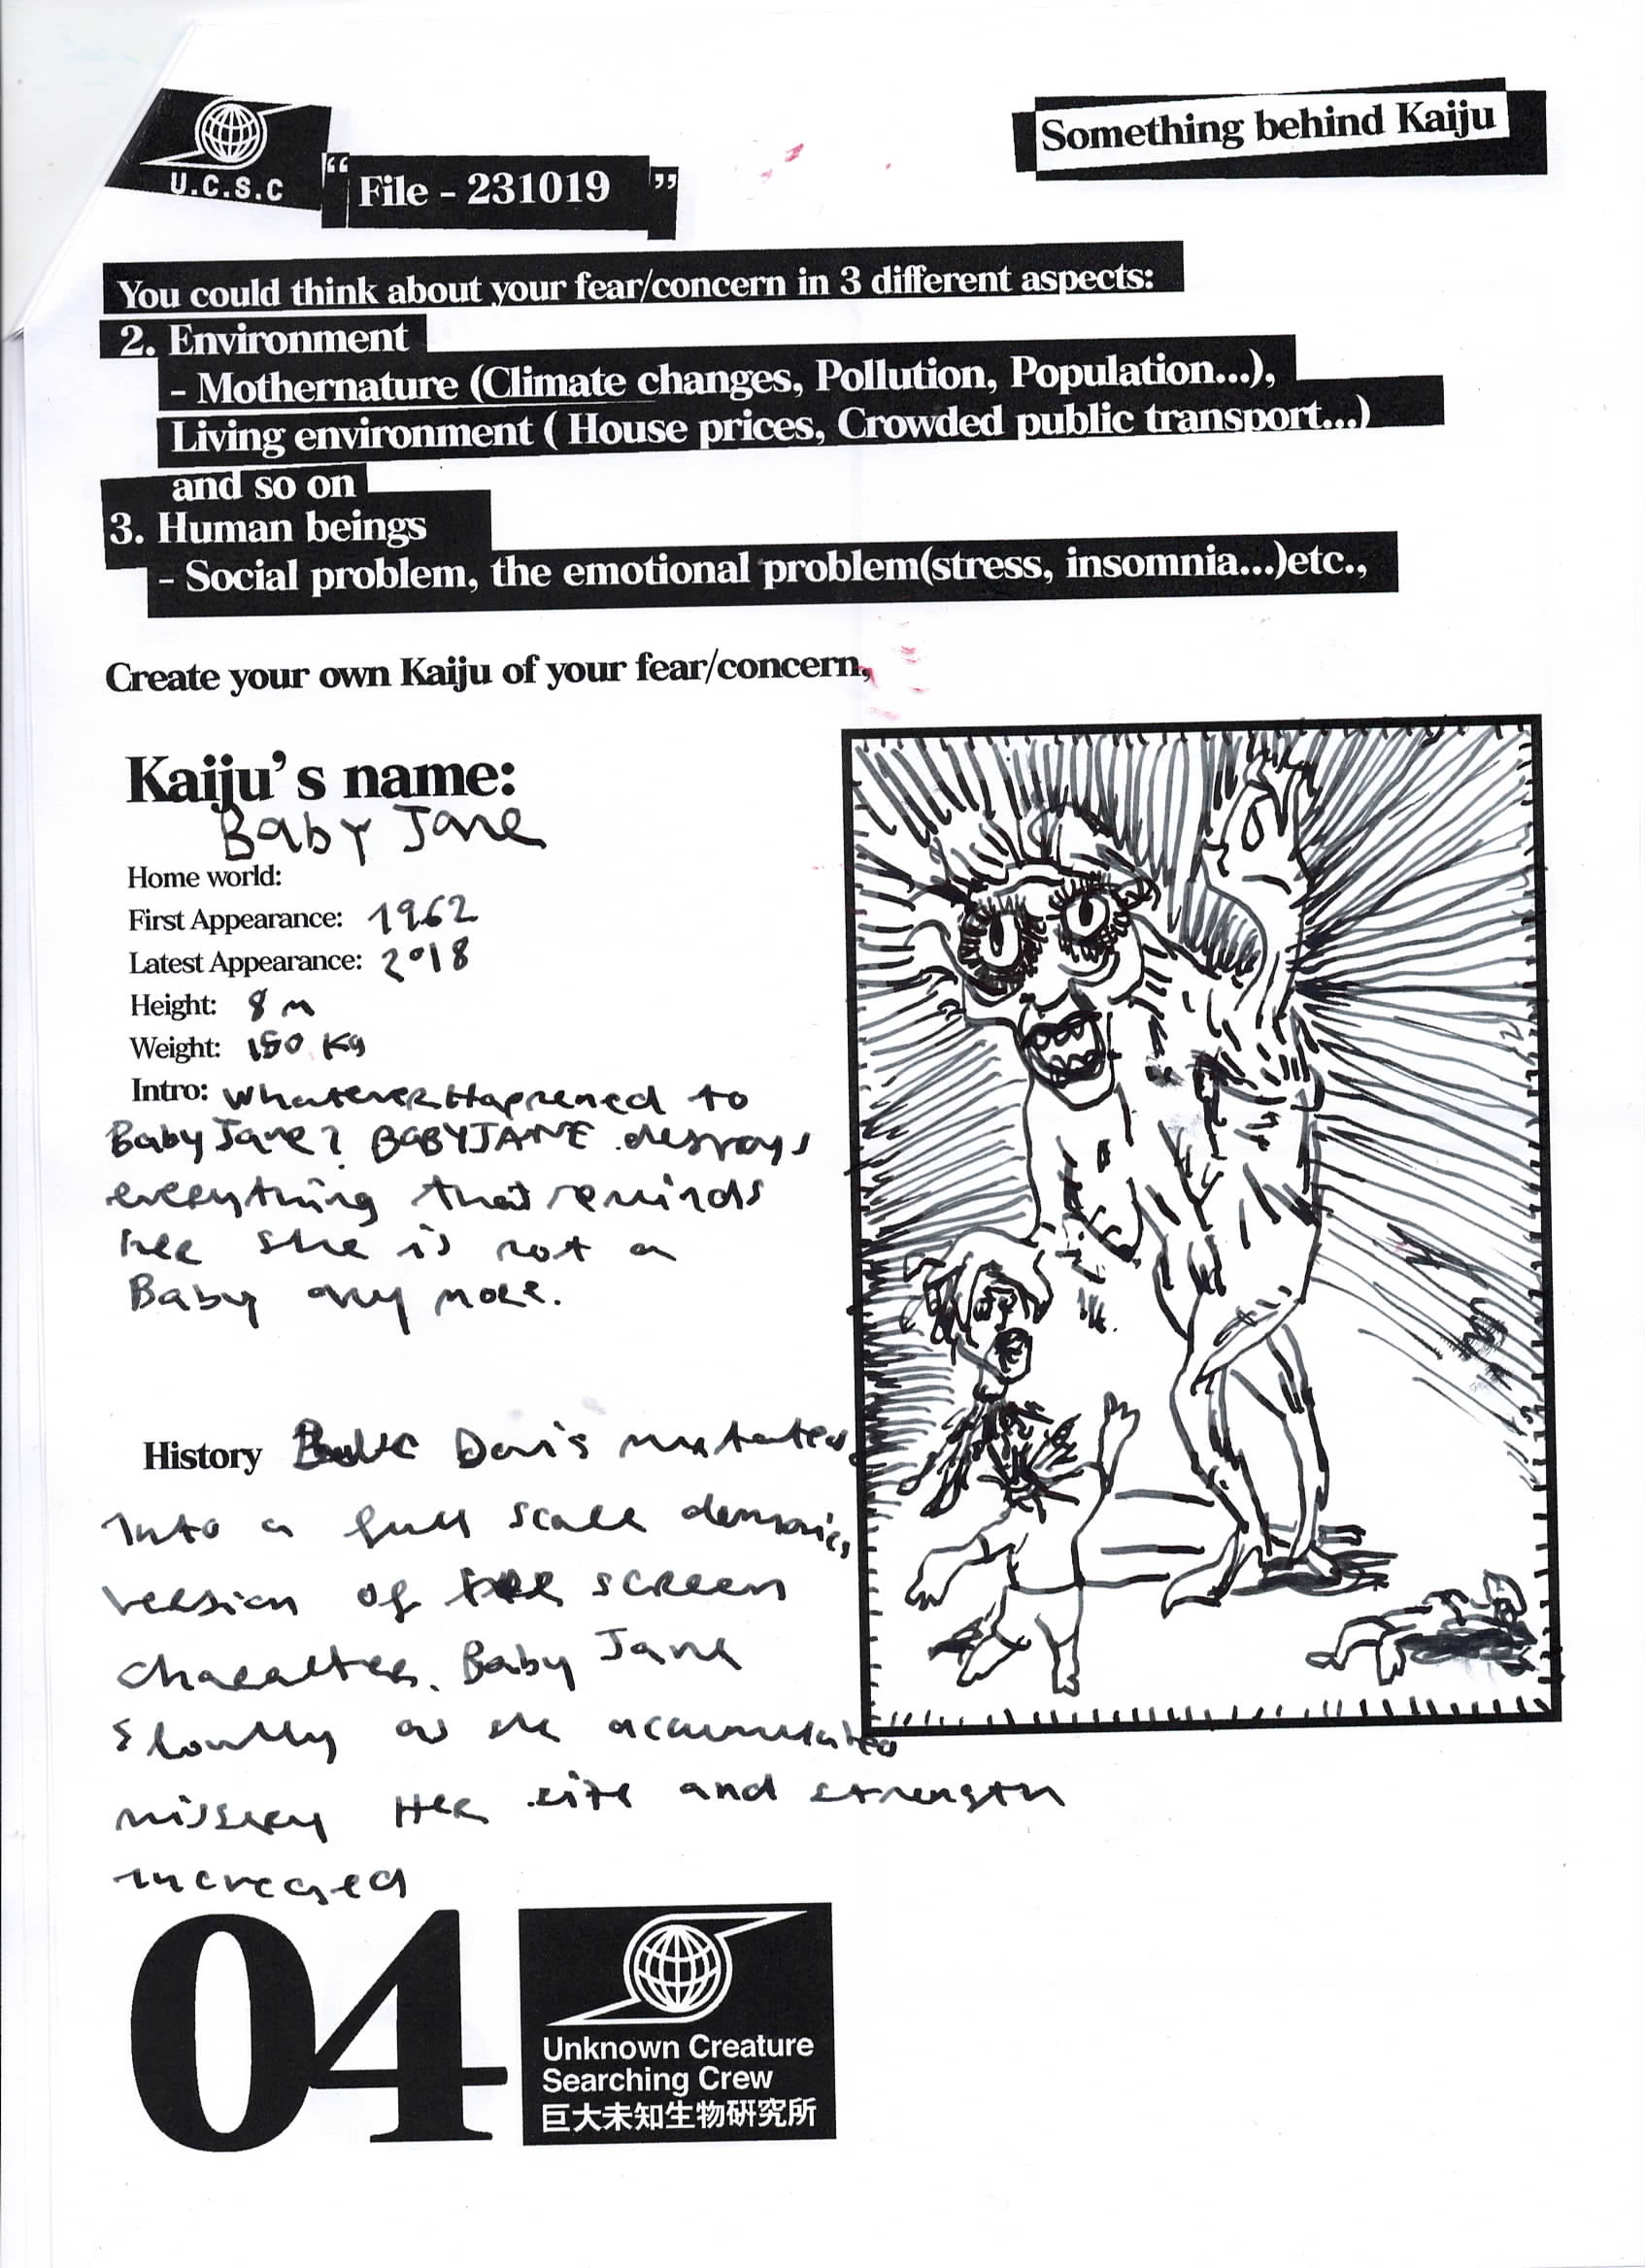 U.C.S.C
“ File - 231019 ”
Something behind Kaiju
You could think about your fear/concern in 3 different aspects:
2. Environment
- Mothernature (Climate changes, Pollution, Population...),
Living environment ( House prices, Crowded public transport...)
and so on
3. Human beings
- Social problem, the emotional problem(stress, insomnia...)etc.,
Create your own Kaiju of your fear/concern,
Kaiju's name:
Baby Jane
Home world:
First Appearance: 1962
Latest Appearance: 2018
Height: 8 m
Weight: 150 Kg
Intro: whatever Happened to
Baby Jane? BABYJANE destroys
everything that reminds
her she is not a
Baby any more.
History Davis mutated
into a full scale demonic
version of screen
character. Baby Jane
slowly as she accumulated
missery Her size and strength
increased
04
Unknown Creature
Searching Crew
巨大未知生物研究所